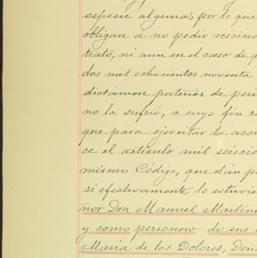 especie alguna, por lo que
obligan a no pedir rescicio
trato, ni aun en el caso de q
dos mil ochocientos noventa
dictámen posterior de peri
no la sufrió, a cuyo fin re
que para ejercitar la accio
ce el artículo mil seiscie
mismo Código, que dán p
si efectivamente lo estuvie
ñor Don Manuel Martine
y como personero de sus
María de los Dolores, Doñ